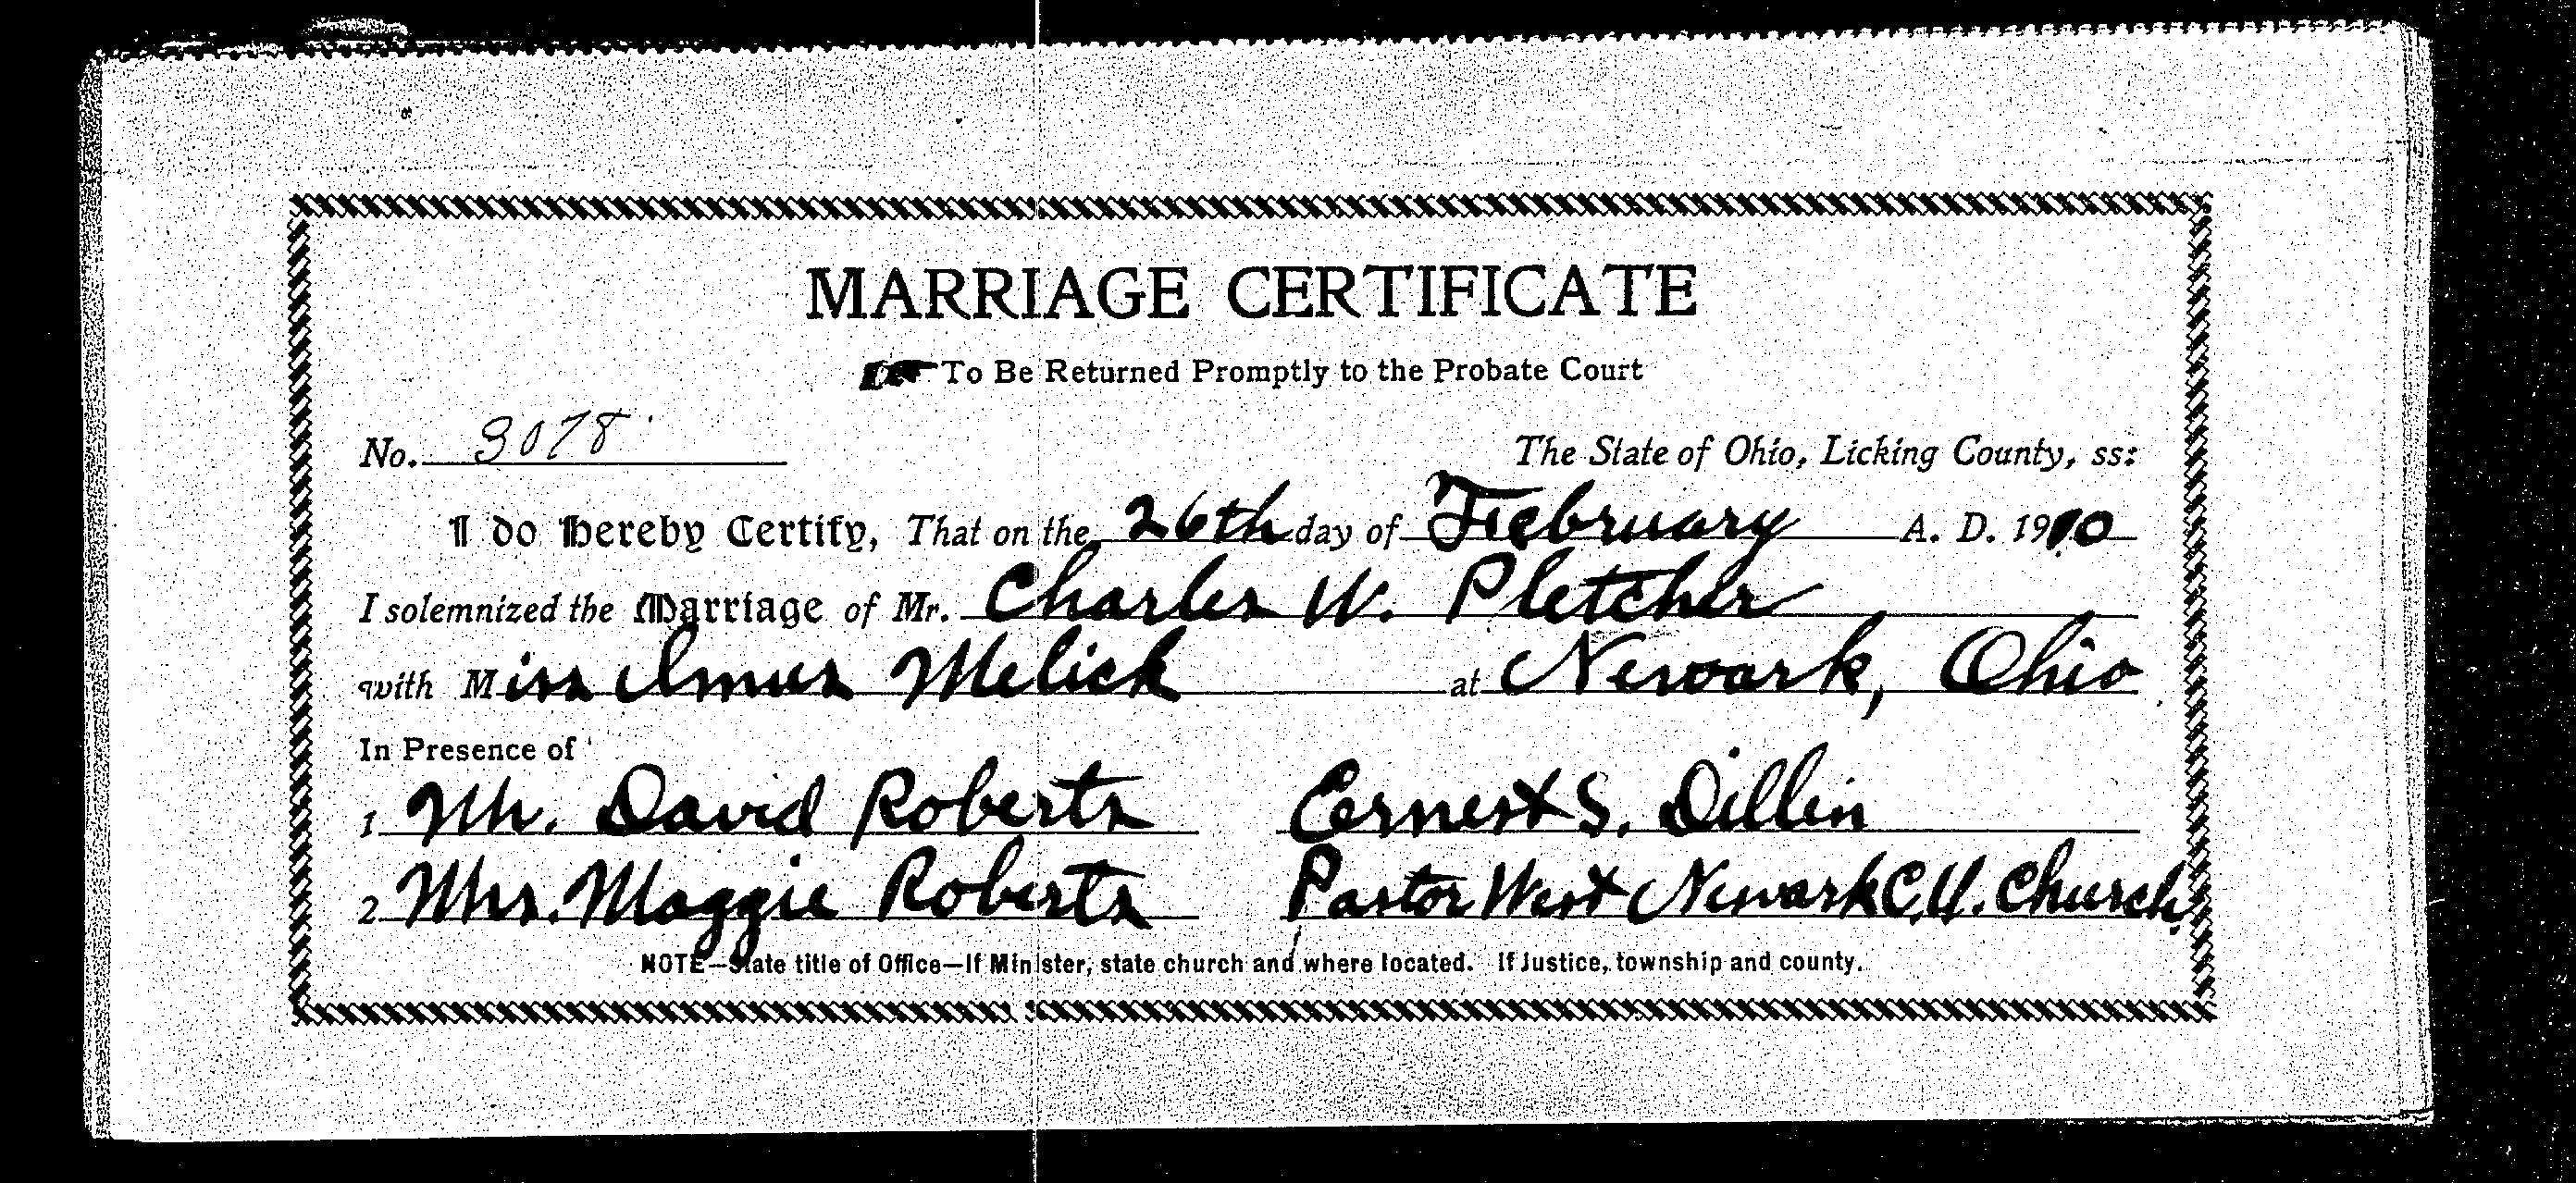 MARRIAGE CERTIFICATE
To Be Returned Promptly to the Probate Court
No. 3078
The State of Ohio, Licking County, ss:
I do Hereby Certify, That on the 26th day of February A. D. 1910
I solemnized the Marriage of Mr. Charles W. Pletcher
with Miss Melick at Newark, Ohio
In Presence of
1 Mr. David Roberts Ernest S. Dillin
2 Mrs. Maggie Roberts Pastor West Newark C.U. Church.
NOTE—State title of Office—If Minister, state church and where located. If Justice, township and county.